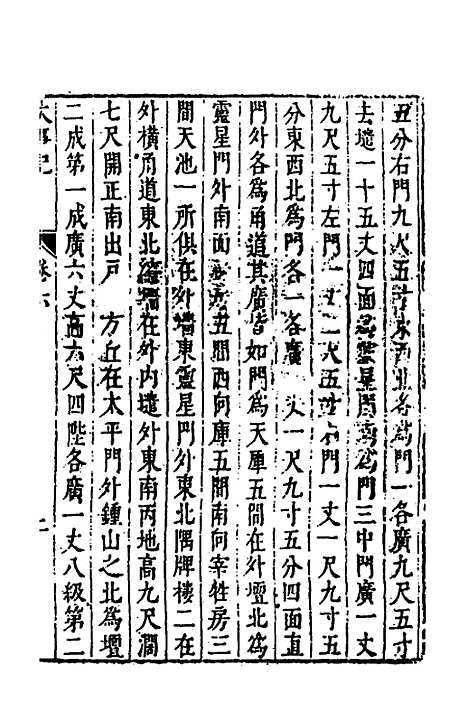 五分右門九尺五寸東西北各爲門一各廣九尺五寸
去壝一十五丈四面爲靈星門南爲門三中門廣一丈
九尺五寸左門一丈一尺五寸右門一丈一尺九寸五
分東西北爲門各一各廣 丈一尺九寸五分四面直
門外各爲甬道其廣皆如門爲天庫五間在外壇北爲
靈星門外南面 五間西向庫五間南向宰牲房三
間天池一所俱在外墻東靈星門外東北隅牌樓二在
外橫甬道東北 在外内壝外東南丙地高九尺濶
七尺開正南出戸 方丘在太平門外鍾山之北爲壇
二成第一成廣六丈高六尺四陛各廣一丈八級第二
大事記 卷六